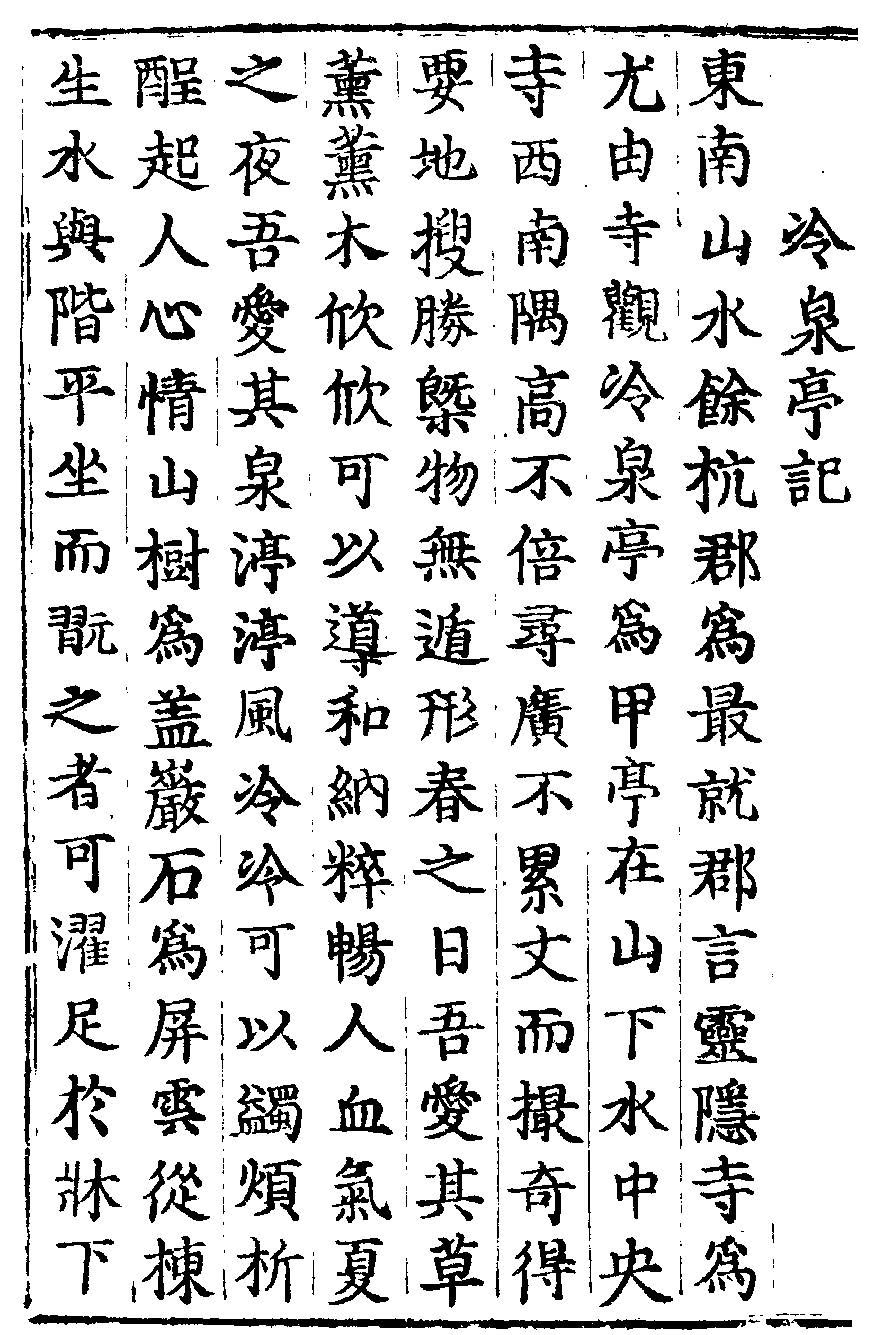 冷泉亭記
東南山水餘杭郡爲最就郡言靈隱寺爲
尤由寺觀冷泉亭爲甲亭在山下水中央
寺西南隅高不倍尋廣不累丈而撮奇得
要地搜勝槩物無遁形春之日吾愛其草
薰薰木欣欣可以導和納粹暢人血氣夏
之夜吾愛其泉渟渟風冷冷可以蠲煩析
酲起人心情山樹爲盖巖石爲屏雲從棟
生水與階平坐而翫之者可濯足於牀下